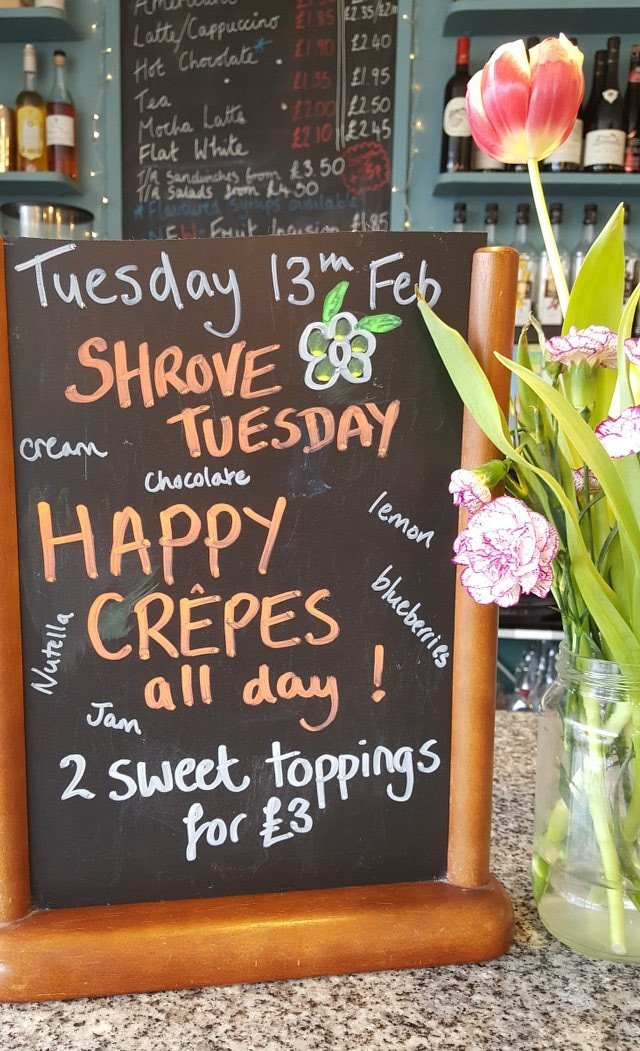 Americano £1.85 £2.35/£2
Latte/Cappuccino £1.85
Hot Chocolate* £1.90 £2.40
Tea £1.35 £1.95
Mocha Latte £2.00 £2.50
Flat White £2.10 £2.45
T/A Sandwiches from £3.50
T/A Salads from £4.50
*Flavoured syrups available
NEW- Fruit Infusion £1.85
Tuesday 13th Feb
SHROVE
TUESDAY
cream
chocolate
lemon
HAPPY
CRÊPES
all day !
blueberries
Nutella
Jam
2 sweet toppings
for £3